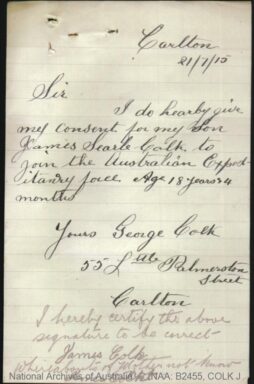 Carlton
21/7/15
Sir
I do hearby give
my consent for my Son
James Searle Colk to
join the Australian Exped-
itanry force Age 18 years 4
months
Yours George Colk
55 Little Palmerston
Street
Carlton
I hereby certify the above
signature to be correct
James Colk
whereabouts of Mother not know
National Archives of Australia NAA: B2455, COLK J